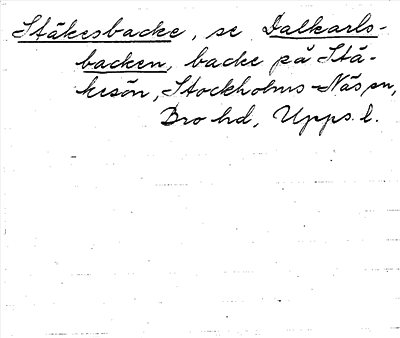 Stäkesbacke, se Dalkarls-
backen, backe på Stä-
kesön, Stockholms-Näs sn,
Bro hd, Upps. l.